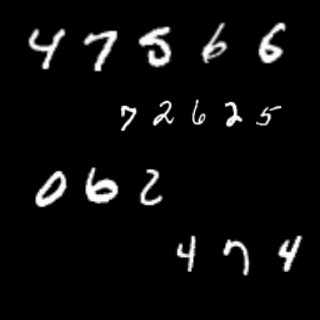 47566
72625
062
474